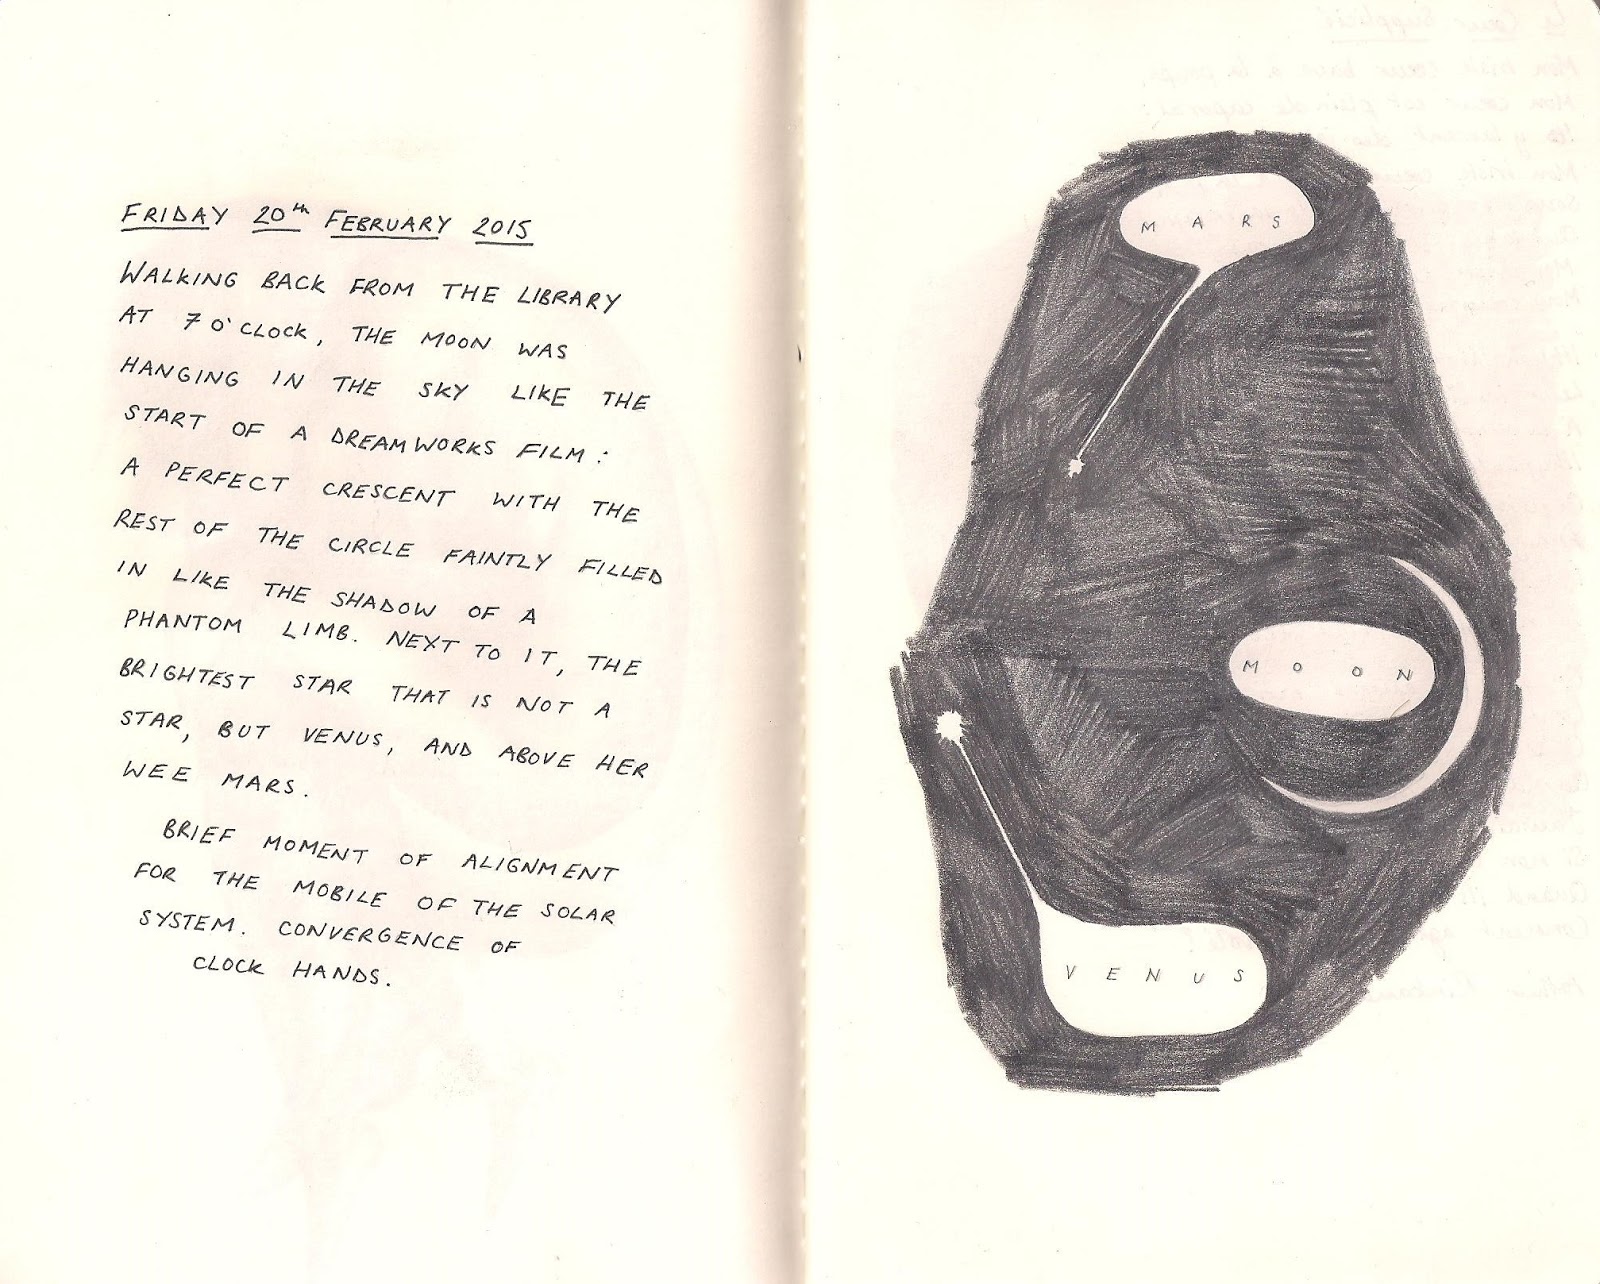 FRIDAY 20th FEBRUARY 2015
WALKING BACK FROM THE LIBRARY
AT 7 O'CLOCK, THE MOON WAS
HANGING IN THE SKY LIKE THE
START OF A DREAMWORKS FILM:
A PERFECT CRESCENT WITH THE
REST OF THE CIRCLE FAINTLY FILLED
IN LIKE THE SHADOW OF A
PHANTOM LIMB. NEXT TO IT, THE
BRIGHTEST STAR THAT IS NOT A
STAR, BUT VENUS, AND ABOVE HER
WEE MARS.
BRIEF MOMENT OF ALIGNMENT
FOR THE MOBILE OF THE SOLAR
SYSTEM. CONVERGENCE OF
CLOCK HANDS.
MARS
MOON
VENUS